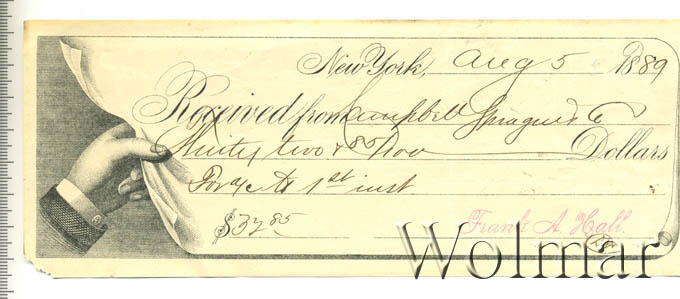 New York, Aug 5 1889
Received from Campbell Sprague & Co
Thirty two & 85/100 Dollars
For a/c to 1st inst.
$32.85
Frank A. Hall.
Wolmar